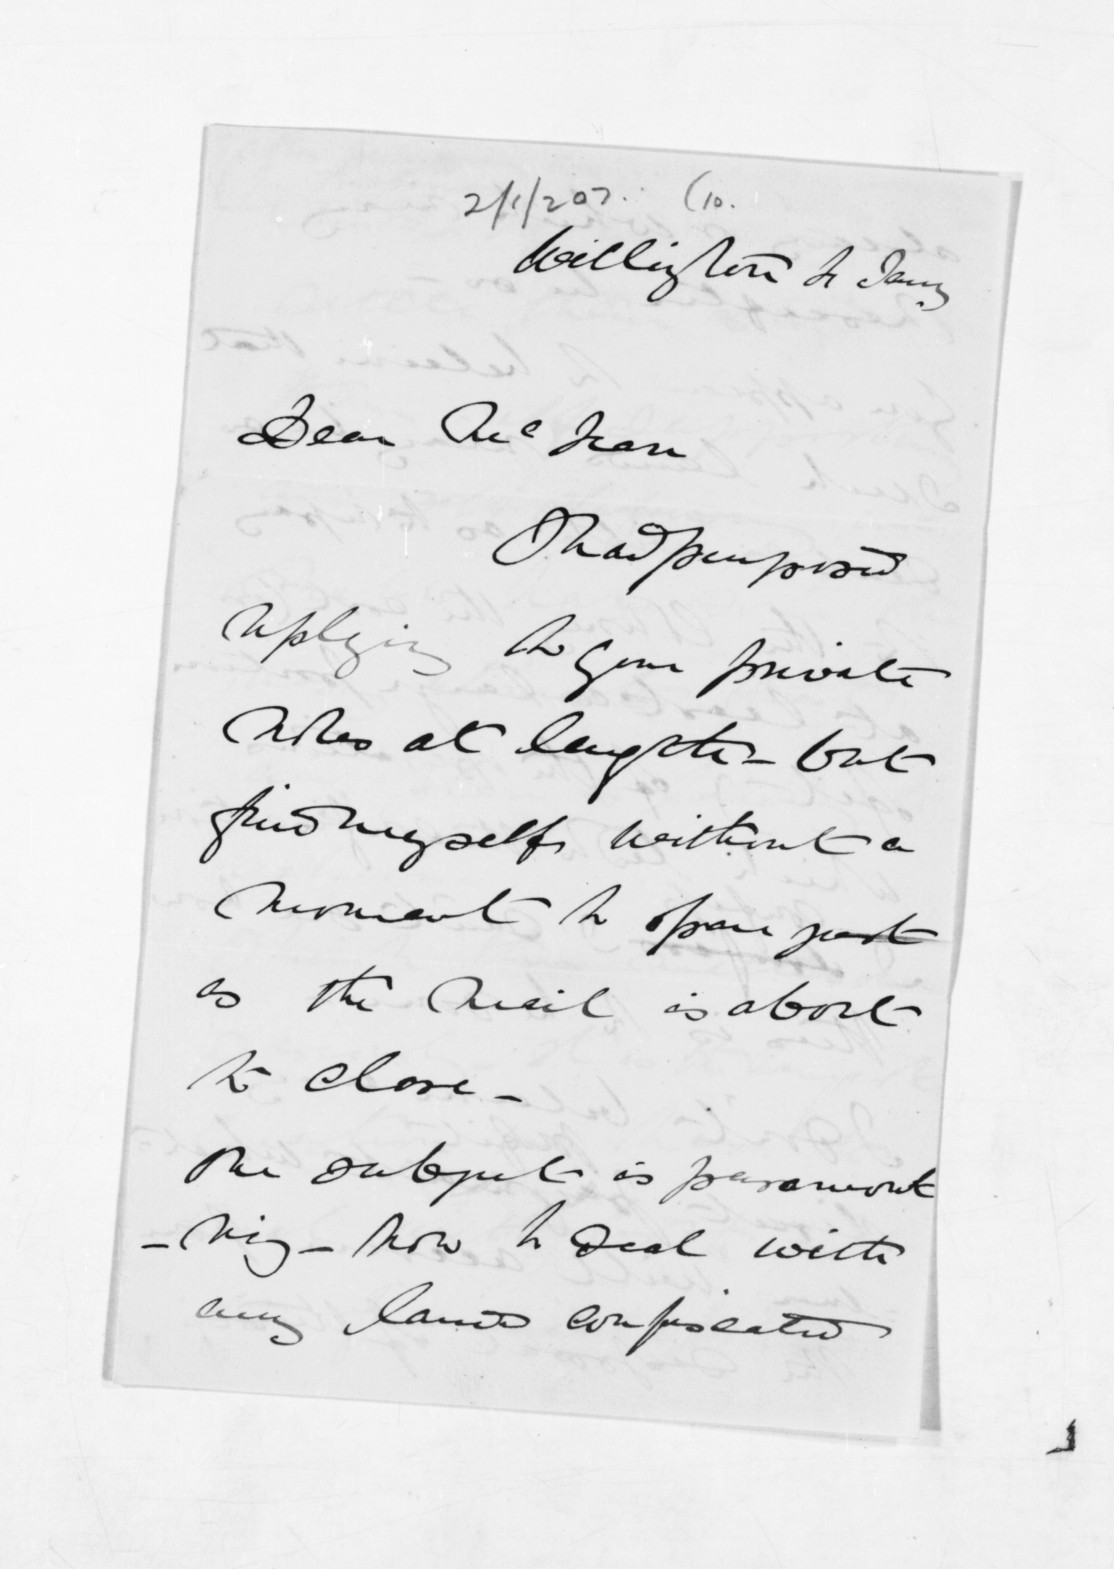 2/1/207. (10.
Wellington Jany
Dear McLean
I had purposed
replying to your private
notes at length - but
find myself without a
moment to spare just
as the mail is about
to close -
The subject is paramount
- how to deal with
any lands confiscated